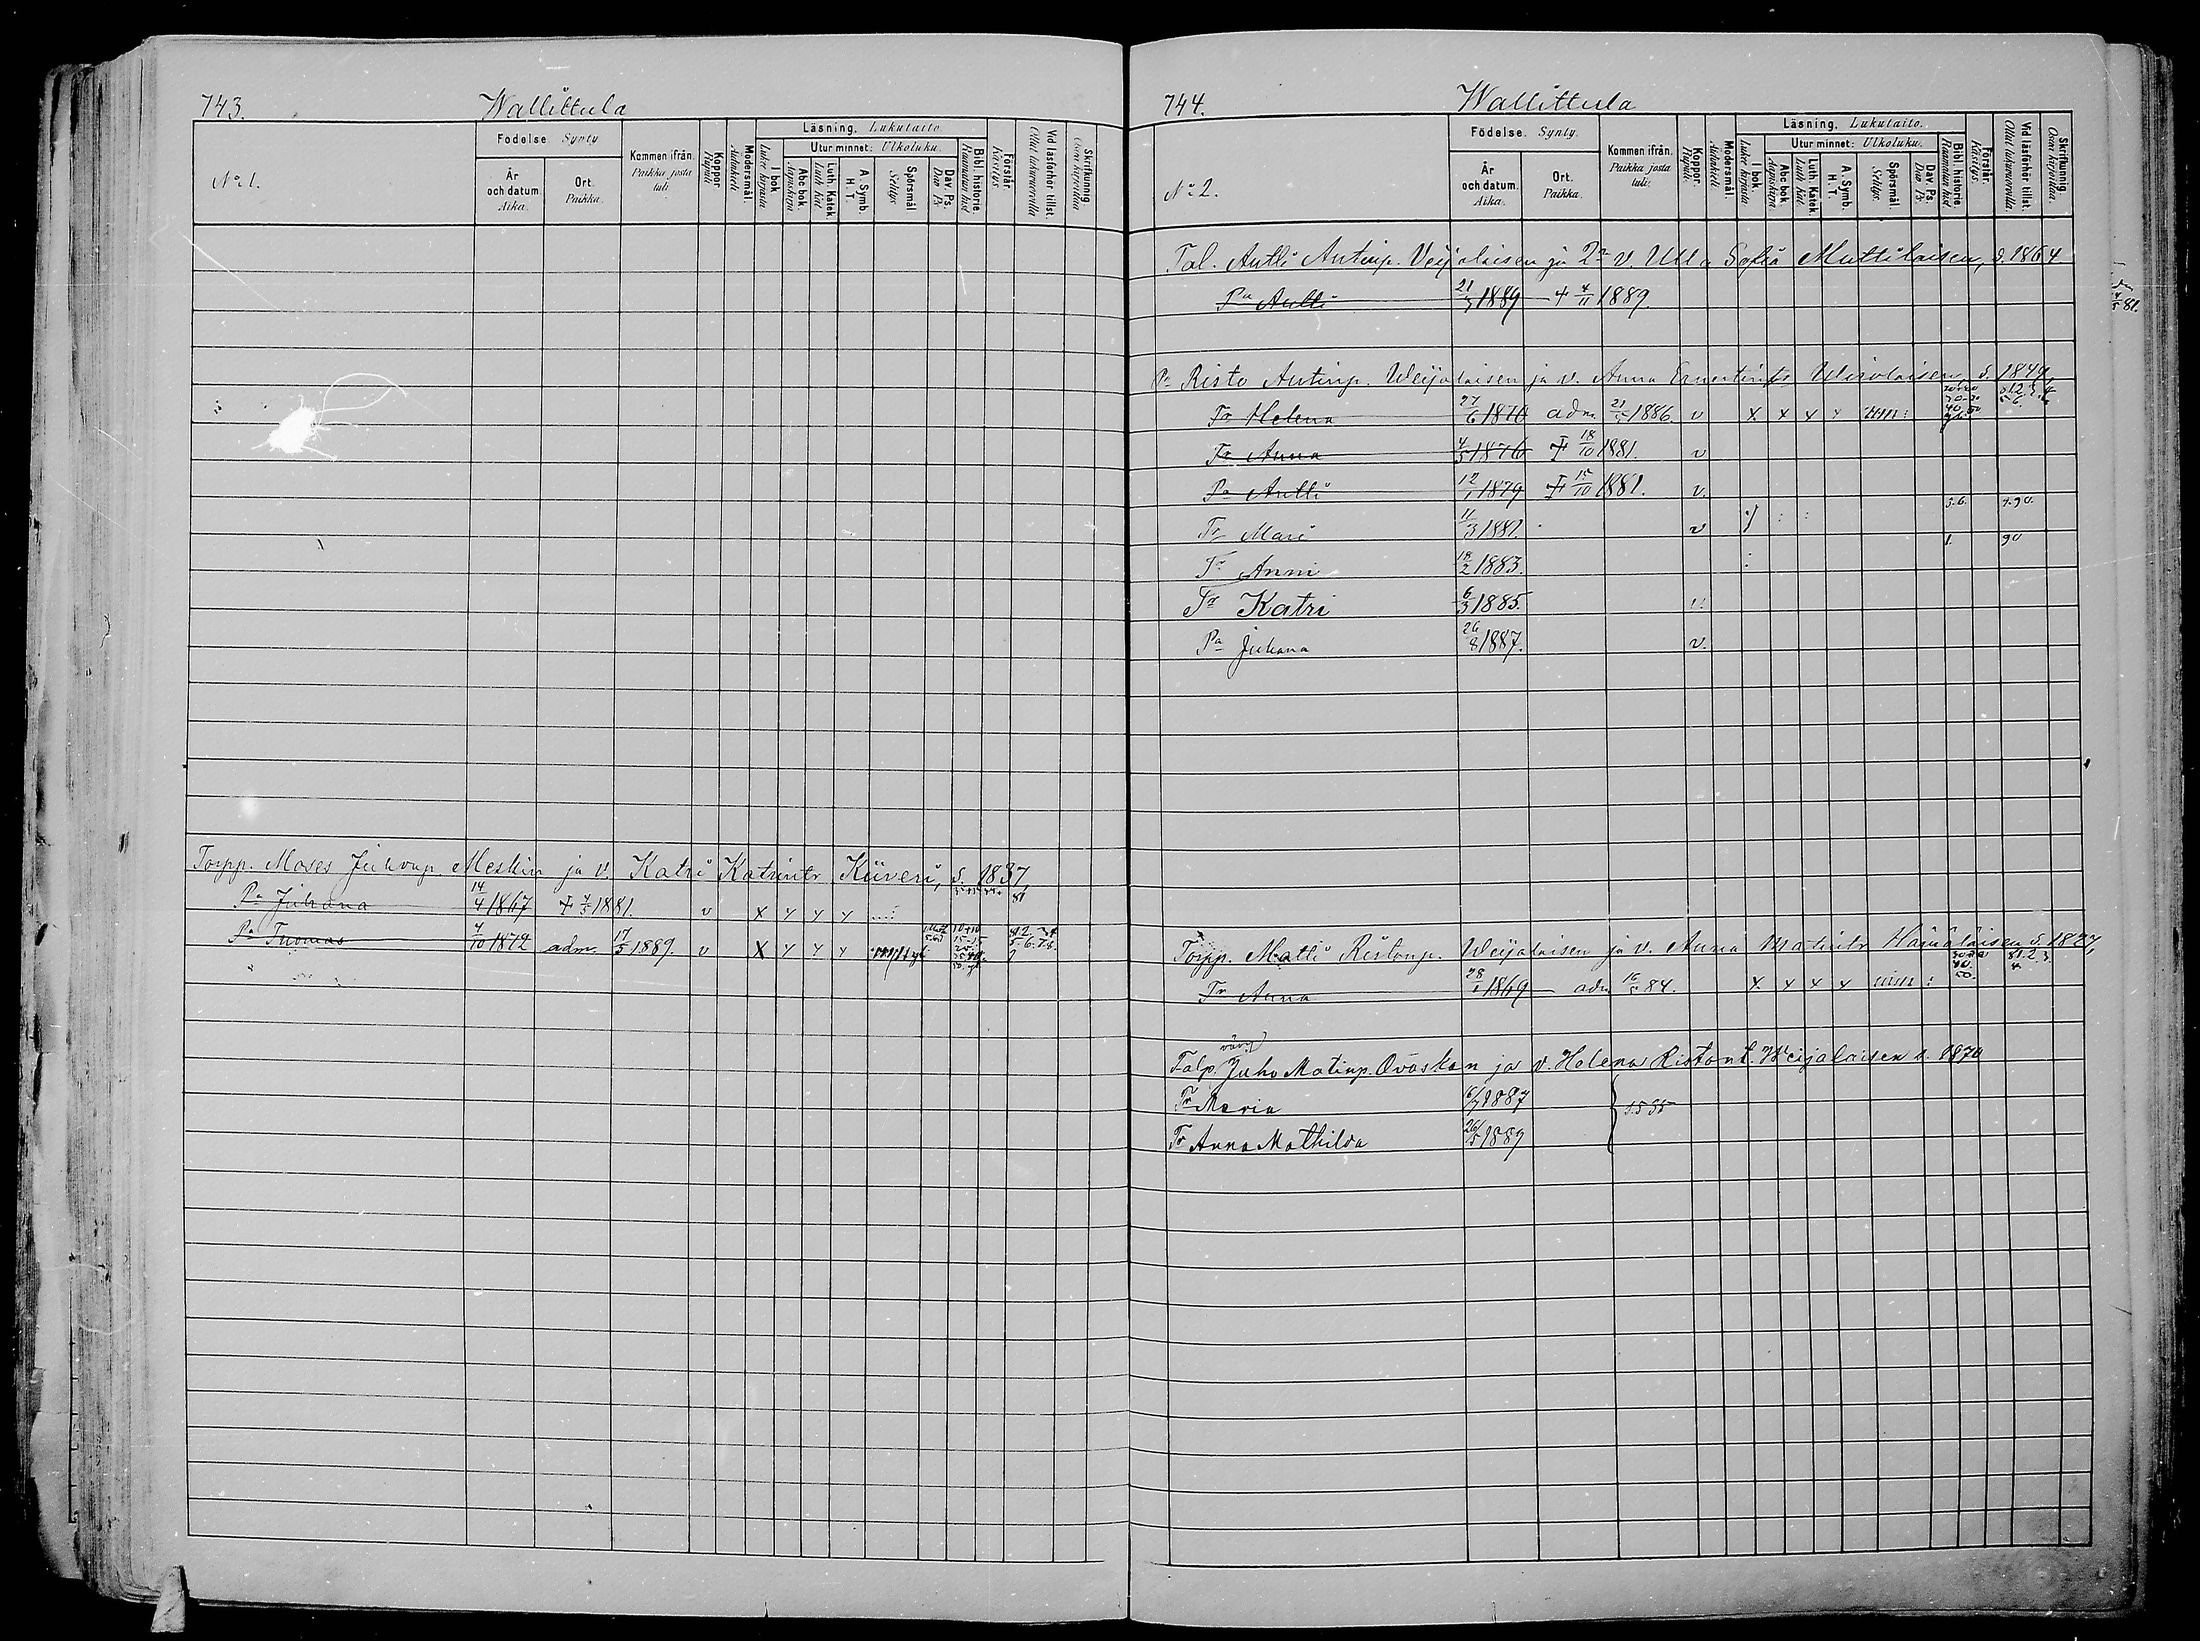 743. Wallittula
No 1.
Födelse. Synty
År och datum. Aika.
Ort. Paikka.
Kommen ifrån. Paikka josta tuli.
Koppor Rupuli
Modersmål. Äidinkieli
Läsning. Lukutaito.
I bok. Lukee kirjasta
Utur minnet: Ulkoluku.
Abc bok. Aapiskirja
Luth. Katek. Luth Kat.
A. Symb. H. T.
Spörsmål Selitys
Dav. Ps. Dav. Ps.
Bibl. historie. Raamatun hist.
Förstår. Käsitys.
Vid läsförhör tillst. Ollut lukuruvuilla
Skrifkunnig Osaa kirjoittaa
Torpp. Moses Juhonp. Meskin ja v. Katri Katrintr Kiiveri, s. 1837
Pa Juhana 14/4 1867 + 4/5 1881. v x x x x 81
Pa Tuomas 4/10 1872 adm. 17/5 1889. v x x x x
744. Wallittula
No 2.
Födelse. Synty.
År och datum. Aika.
Ort. Paikka.
Kommen ifrån. Paikka josta tuli.
Koppor. Rupuli.
Modersmål. Äidinkieli
Läsning. Lukutaito.
I bok. Lukee kirjasta
Utur minnet: Ulkoluku.
Abc bok. Aapiskirja.
Luth. Katek. Luth Kat.
A. Symb. H. T.
Spörsmål. Selitys.
Dav. Ps. Dav. Ps.
Bibl. historie. Raamatun hist.
Förstår. Käsitys.
Vid läsförhör tillst. Ollut lukuruvuilla.
Skrifkunnig. Osaa kirjoittaa.
Tal. Antti Antinp. Veijalaisen ja 2n v. Ulla Sofia Muttilaisen, s. 1864
Pa Antti 21/3 1889 + 4/11 1889.
Pa Risto Antinp. Weijalaisen ja v. Anna Ernestintr s. 1849,
Tr Helena 27/6 1870 adm. 21/5 1886. v x x x x
Tr Anna 4/3 1876 + 18/10 1881. v
Pa Antti 12/1 1879 + 15/10 1881. v.
Tr Mari 11/3 1881. v
Tr Anni 18/2 1883.
Tr Katri 6/3 1885.
Pa Juhana 26/8 1887. v.
Torpp. Matti Ristonp. Weijalaisen ja v. Anna Matintr Hämäläisen s. 1827,
Tr Anna 28/1 1869 adm 16/5 84. x x x x
vävy
Talp. Juho Matinp. Ovaskan ja v. Helena Ristont. Weijalaisen s. 1870
Tr Maria 6/7 1887
Tr Anna Mathilda 26/5 1889